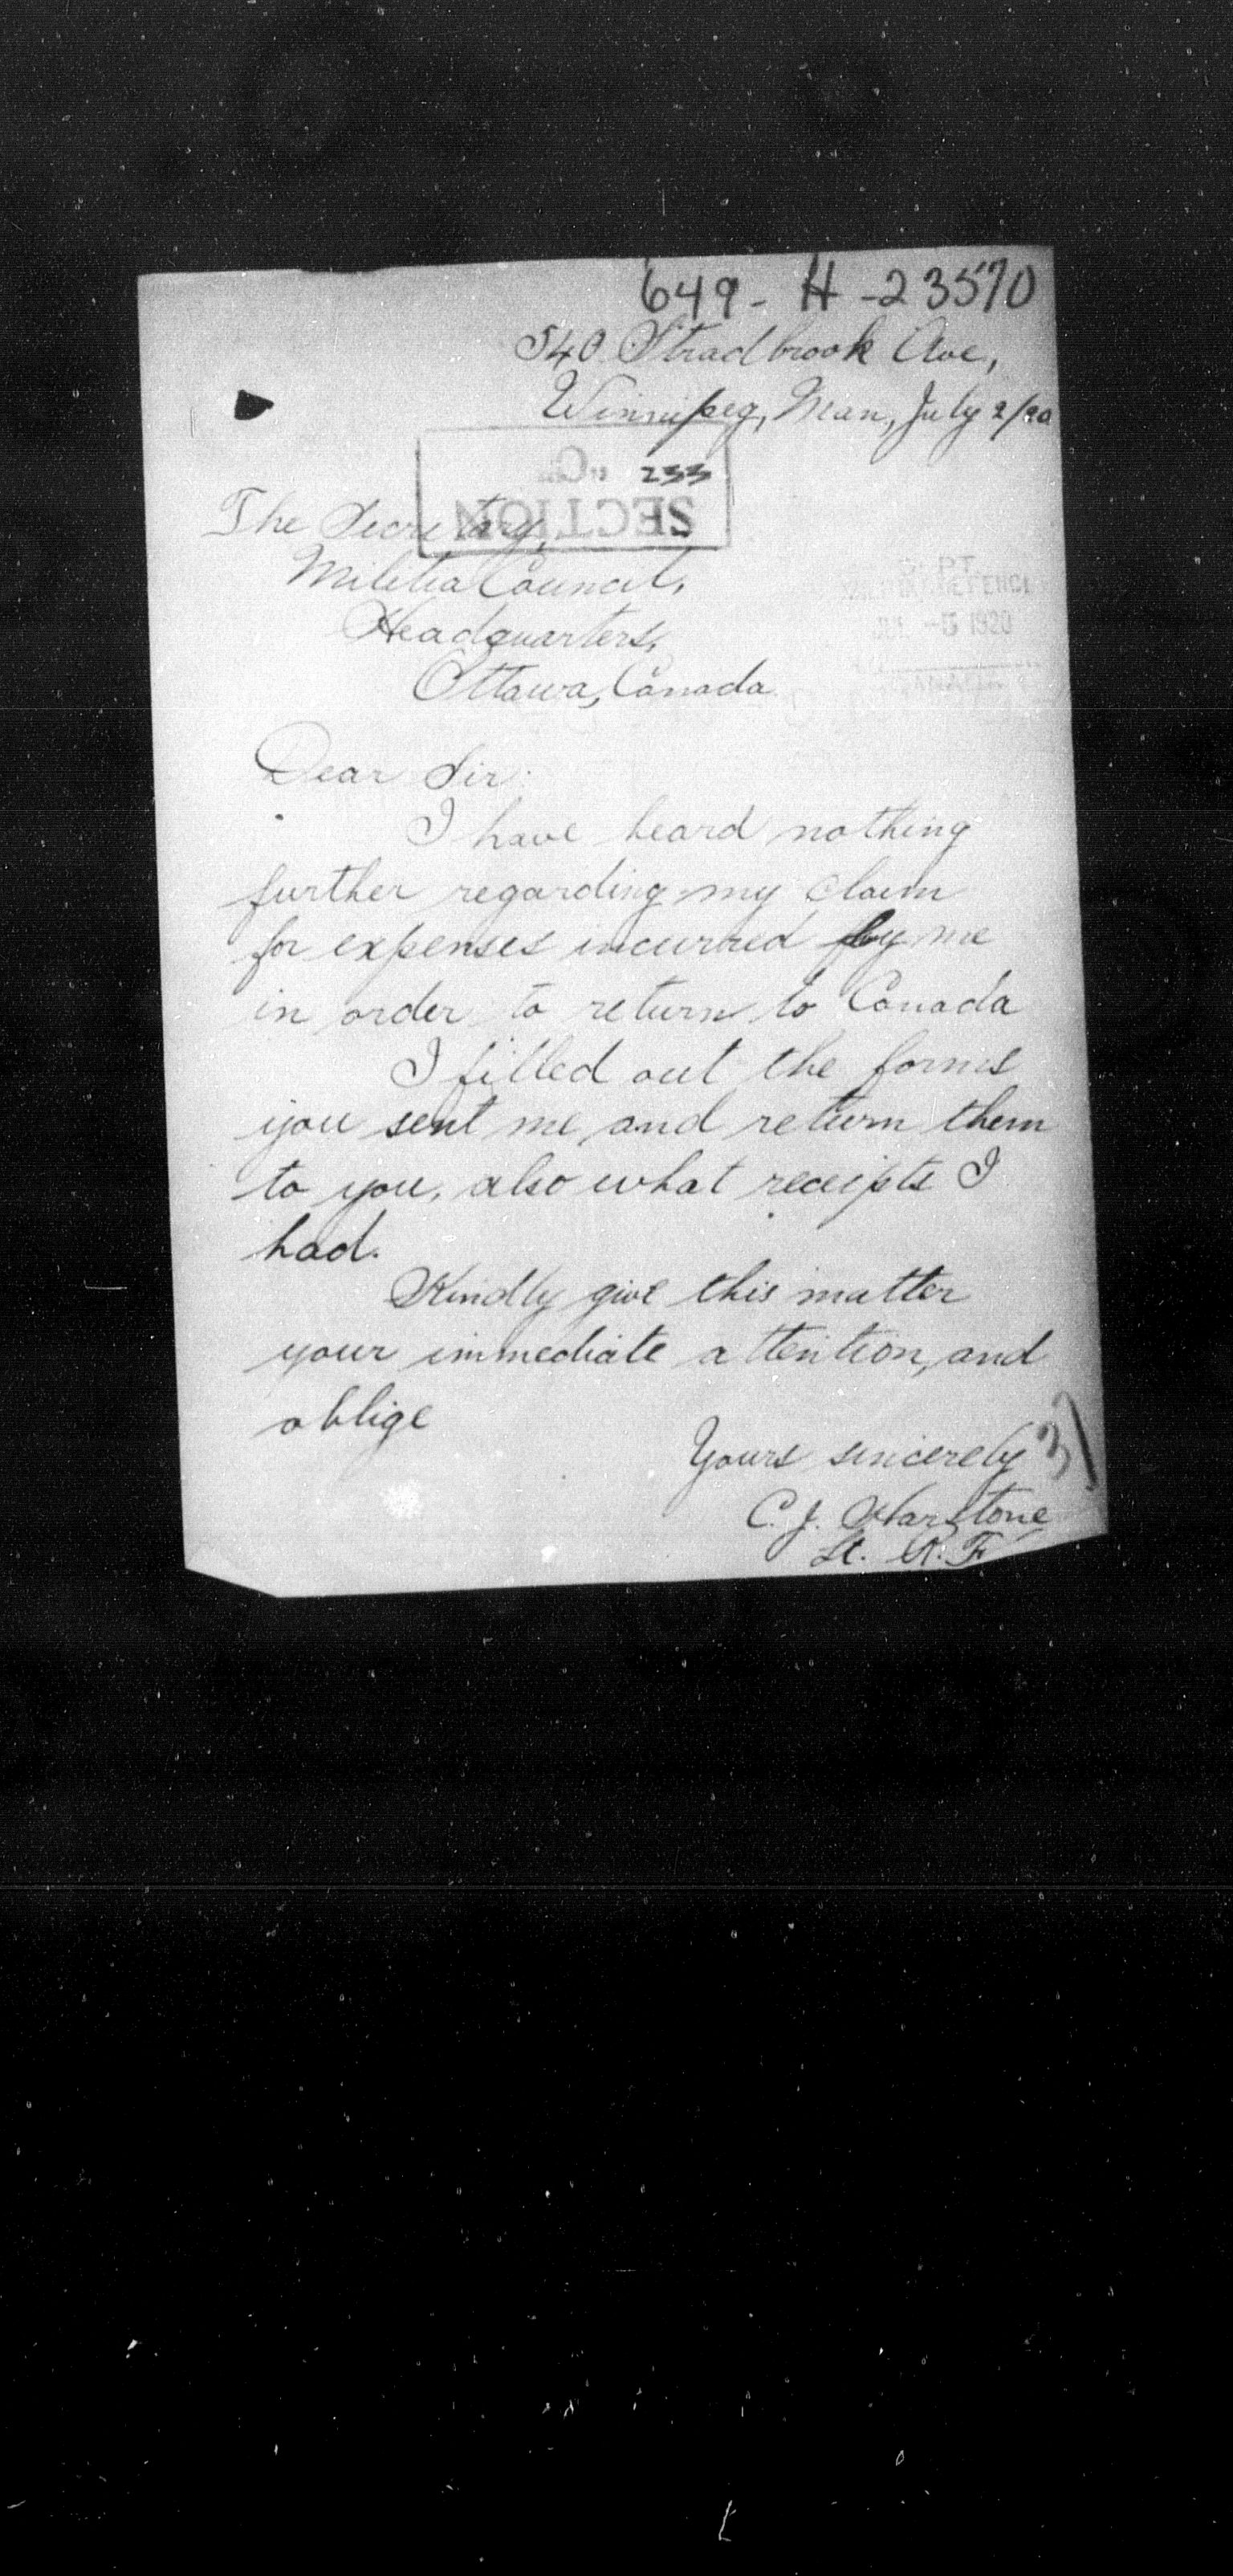 649 - H - 23570
540 Stradbrook Ave,
Winnipeg, Man, July 2/20
"C" 233
SECTION
The Secretary,
Militia Council,
Headquarters,
Ottawa, Canada
DEPT.
MILITIA DEFENCE
JUL -5 1920
CANADA
Dear Sir:
I have heard nothing
further regarding my claim
for expenses incurred by me
in order to return to Canada
I filled out the forms
you sent me and return them
to you, also what receipts I
had.
Kindly give this matter
your immediate attention, and
oblige
Yours sincerely
C. J. Harstone
Lt. R. F.